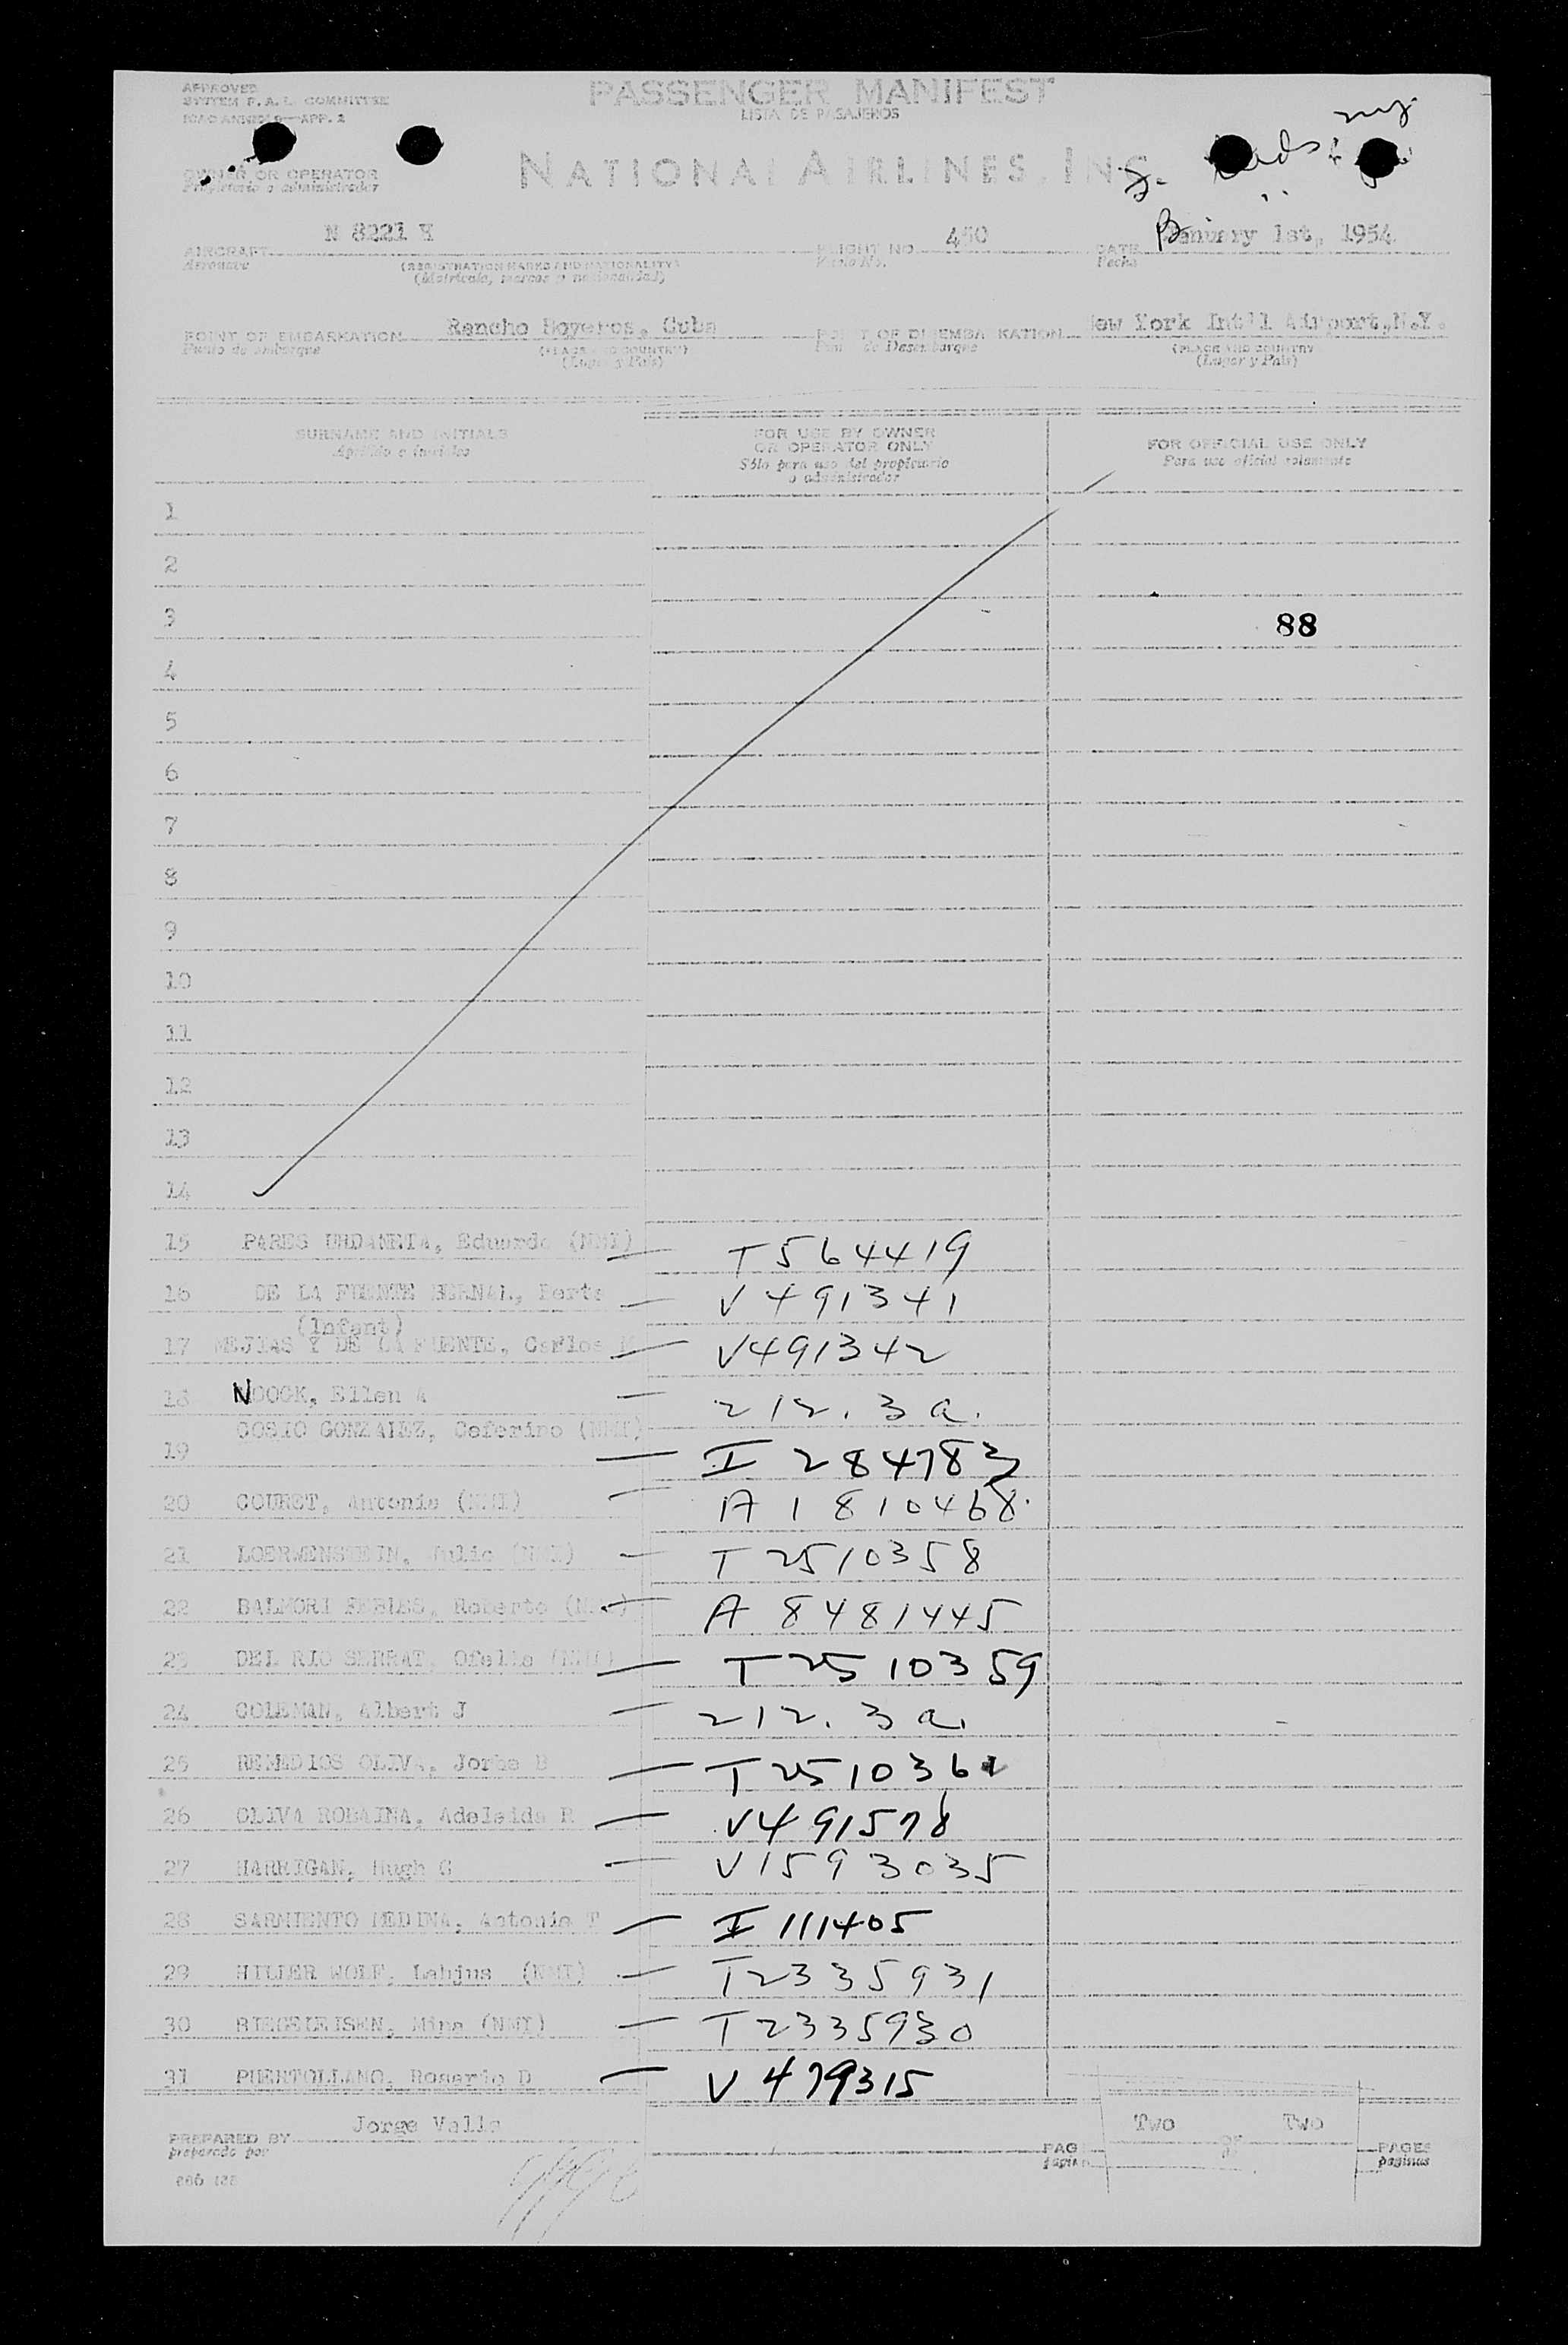 APPROVED
SYSTEM F.A.L. COMMITTEE
ICAO ANNEX 9—APP. 2
PASSENGER MANIFEST
LISTA DE PASAJEROS
OWNER OR OPERATOR
Propietario o administrador
NATIONAL AIRLINES, INC.
AIRCRAFT N 8221 H FLIGHT NO. 450 DATE January 1st, 1954
Aeronave (REGISTRATION MARKS AND NATIONALITY) Vuelo No. Fecha
(Matricula, marcas y nacionalidad)
POINT OF EMBARKATION Rancho Boyeros, Cuba POINT OF DISEMBARKATION New York Int'l Airport, N.Y.
Punto de embarque (PLACE AND COUNTRY) Punto de Desembarque (PLACE AND COUNTRY)
(Lugar y País) (Lugar y País)
SURNAME AND INITIALS FOR USE BY OWNER OR OPERATOR ONLY FOR OFFICIAL USE ONLY
Apellido e Iniciales Sólo para uso del propietario o administrador Para uso oficial solamente
1
2
3 88
4
5
6
7
8
9
10
11
12
13
14
15 PARES URDANETA, Eduardo (NMI) — T564419
16 DE LA FUENTE BERNAL, Berta — V491341
(Infant)
17 MEJIAS Y DE LA FUENTE, Carlos M — V491342
18 NOOCK, Ellen A — 212.3a.
19 COSIO GONZALEZ, Ceferino (NMI) — I 284783
20 COURET, Antonio (NMI) — A 1810468
21 LOERWENSTEIN, Julio (NMI) — T2510358
22 BALMORI, Roberto (NMI) — A 8481445
23 DEL RIO SERRAT, Ofelia (NMI) — T2510359
24 COLEMAN, Albert J — 212.3a.
25 REMEDIOS OLIVA, Jorge B — T251036
26 OLIVA ROBAINA, Adelaida R — V491578
27 HARRIGAN, Hugh G — V1593035
28 SARMIENTO MEDINA, Antonio T — I 111405
29 HILLER WOLF, (NMI) — T2335931
30 BIEGELEISEN, Mina (NMI) — T2335930
31 PUERTOLLANO, Rosario D — V479315
PREPARED BY Jorge Valle PAGE Two OF Two PAGES
preparado por página de páginas